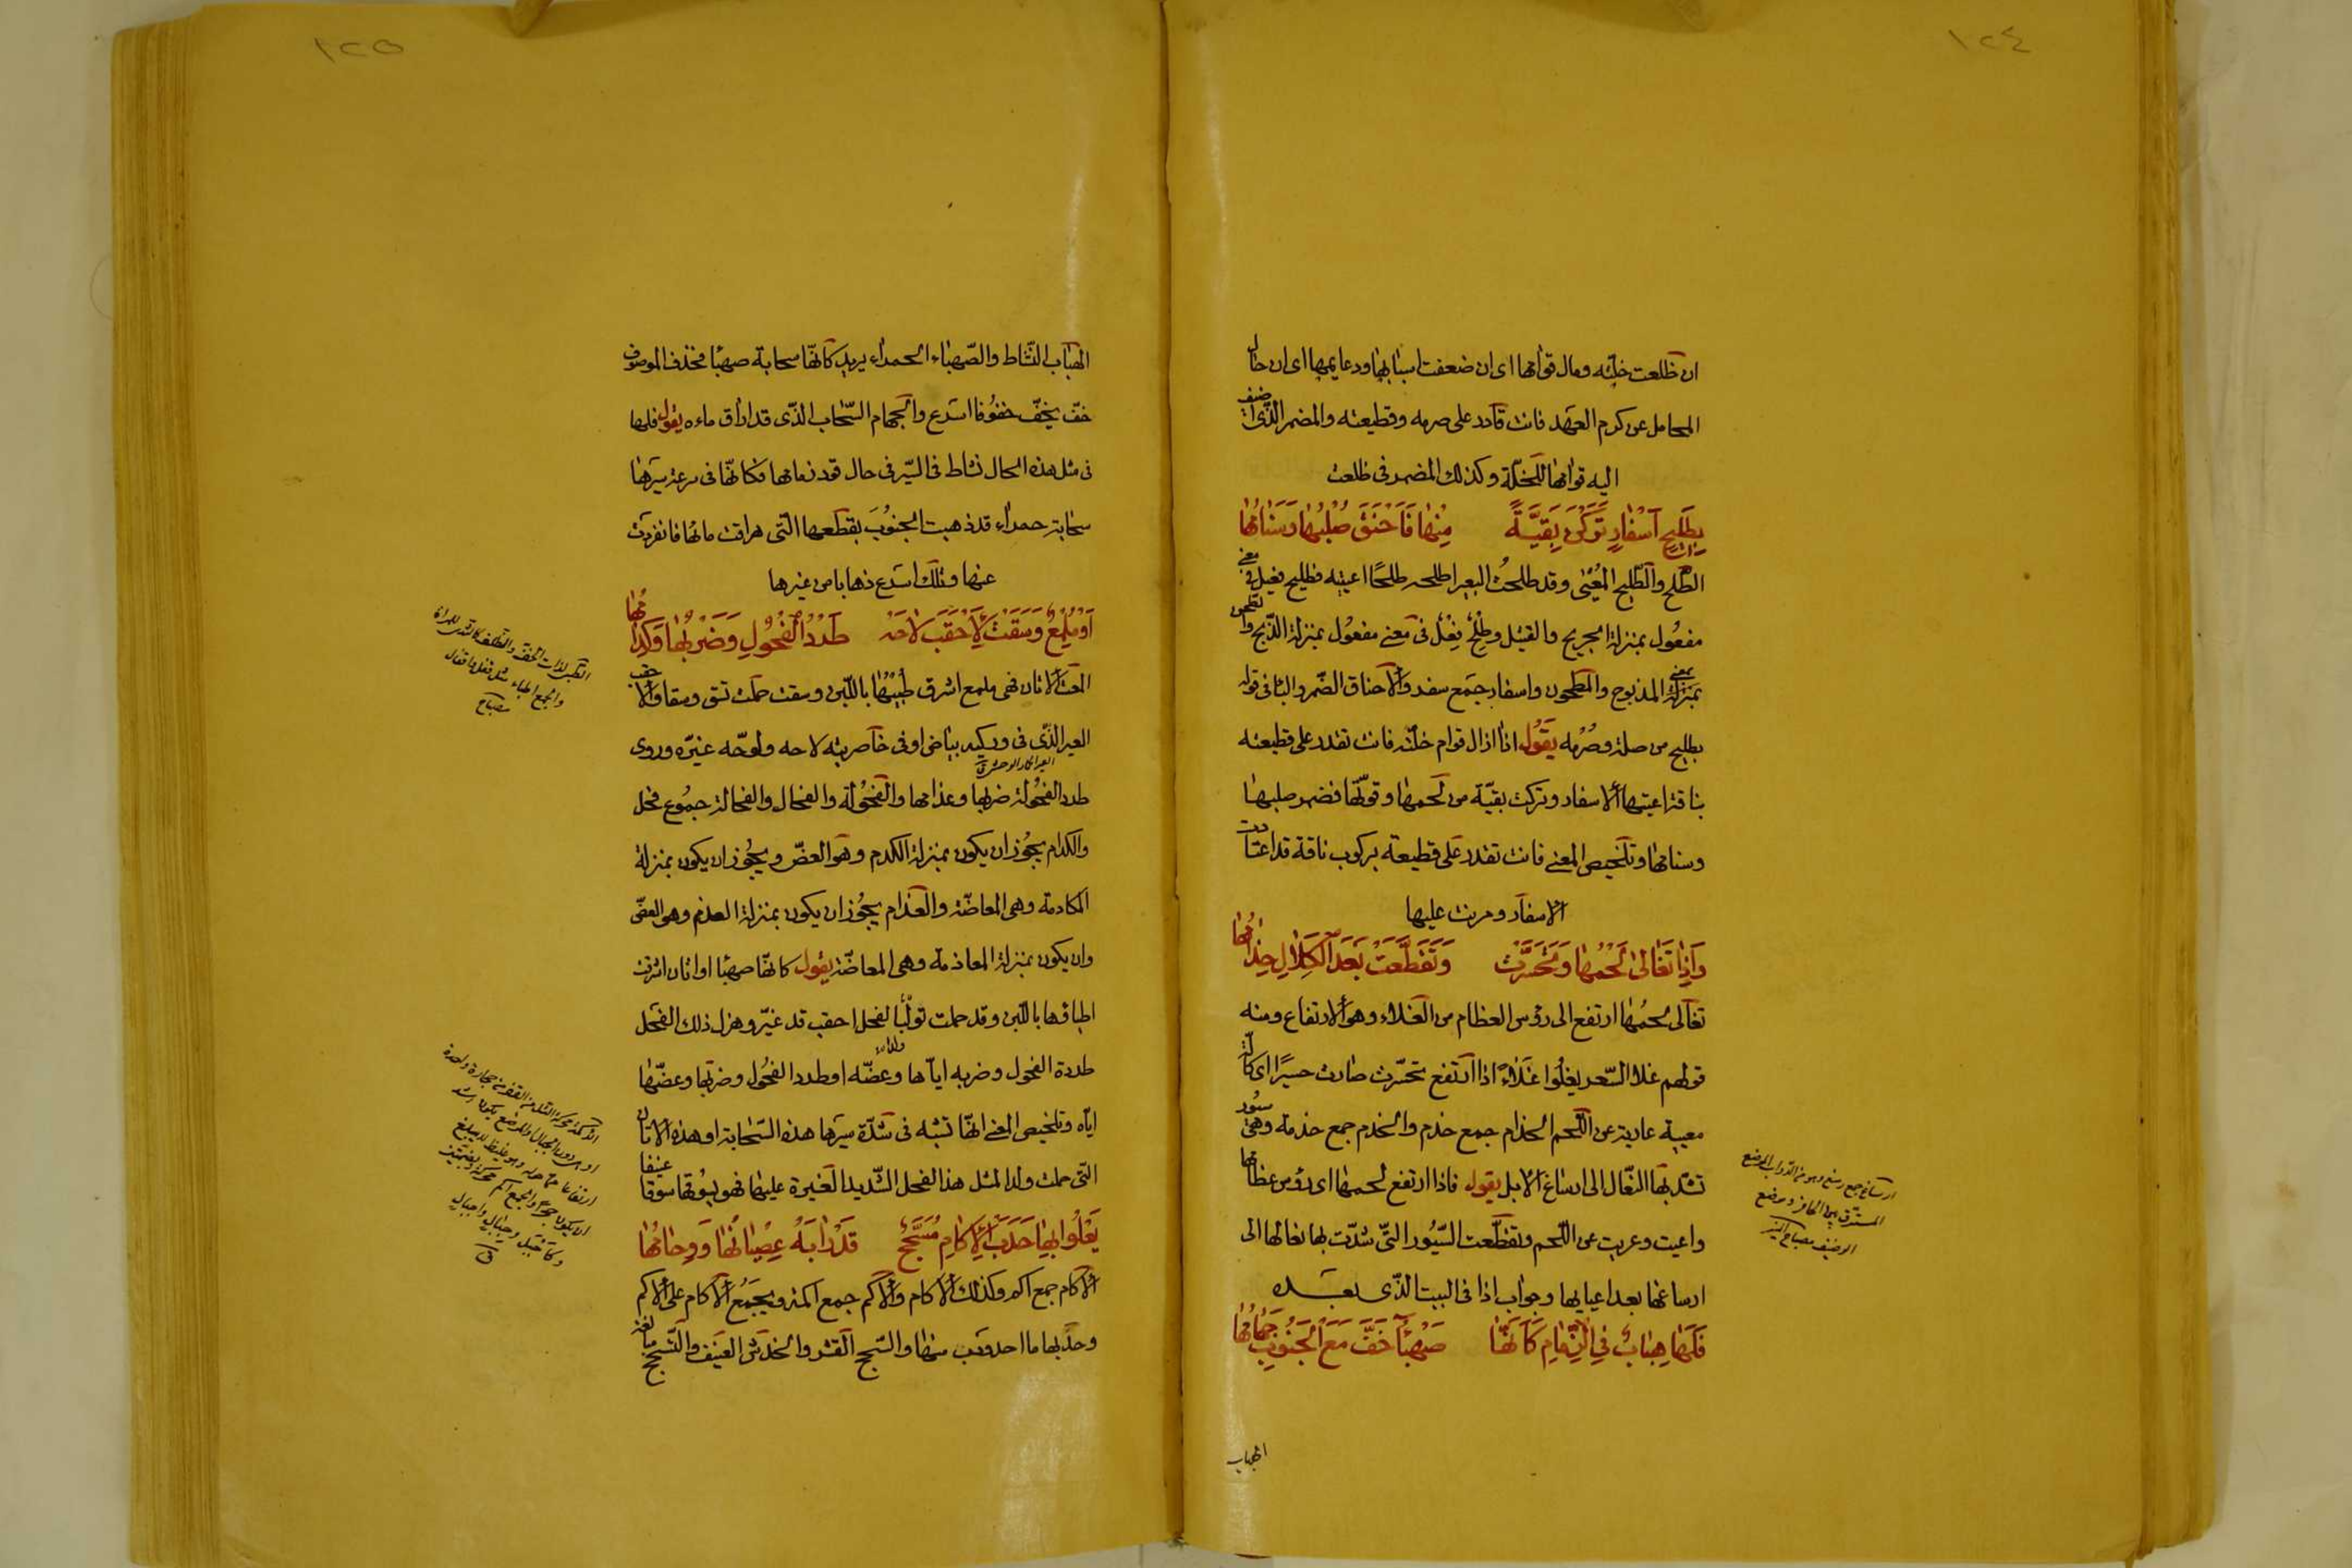 ١٢٤
ان ظلعت خلته ومال قوامها اى ان ضعفت اسبابها ودعايمها اى ان حال
المحامل عن كرم العهد فانت قادر على صرمه وقطيعته والمضمر الذى اضيف
اليه قوامها للخلّة وكذلك المضمر فى ظلعت
بِطَلِيحِ اَسْفَارٍ تَرَكْنَ بَقِيَّةً مِنْهَا فَاَحْنَقَ صُلْبُهَا وَسَنَامُهَا
الطلح والطليح المُعْيٰى وقد طلحتُ البعير اطلحه طلحًا اعييته فطليح فعيل فى معنى
مفعُول بمنزلة الجريح والقتيل وطِلْحٌ فِعْلٌ فى معنى مفعُول بمنزلة الذبح والطحن
بمعنى المذبوح والمطحون واسفار جمع سفر والاحناق الضمر والباء فى قوله
بطليح من صلة وصُرْمه يَقُول اذا زال قوام خلّته فانت تقدر على قطيعته
بناقة اعيتها الاسفار وتركت بقيّة من لحمها وقوتها فضمر صلبها
وسنامها وتلخيص المعنى فانت تقدر على قطيعته بركوب ناقة قد اعتادت
الاسفار ومرنت عليها
وَاِذَا تَغَالٰى لَحْمُهَا وَتَحَسَّرَتْ وَتَقَطَّعَتْ بَعْدَ الْكَلَالِ خِذَامُهَا
تغالى لحمُها ارتفع الى رؤس العظام من الغلاء وهو الارتفاع ومنه
قولهم غلا السّعر يغلُوا غَلاءً اذا ارتفع تحسّرت صارت حسيرًا اى كالّة
معيبة عارية عن اللّحم الخذام جمع خذم والخذم جمع خذمة وهى سُيُور
تشدّ بها النّعال الى ارساغ الابل يقول فاذا ارتفع لحمها اى رؤس عظامها
واعيت وعريت عن اللّحم وتقطّعت السّيُور التّى شدّت بها نعالها الى
ارساغها بعد اعيايها وجواب اذا فى البيت الذّى بعده
فَلَهَا هِبَابٌ فِى الزِّمَامِ كَاَنَّهَا صَهْبَاءُ خَفَّ مَعَ الْجَنُوبِ جَهَامُهَا
الهباب
ارساغ جمع رسغ وهو من الدّواب الموضع
المستدق بين الحافر وموضع
الوظيف مصباح المنير
١٢٥
الهباب النّشاط والصّهباء الحمراء يريد كانّها سحابة صهبا فحذف الموصوف
خفّ يخفّ خفُوفا اسرع والجهام السّحاب الذّى قد اراق ماءه يقول فلها
فى مثل هذه الحال نشاط فى السّير فى حال قود زمامها فكانّها فى سرعة سيرها
سحابة حمراء قد ذهبت الجنُوبَ بقطعها التّى هراقت ماءها فانفردت
عنها وتلك اسرع ذهابا من غيرها
اَوْ مُلْمِعٌ وَسَقَتْ لِاَحْقَبَ لَاحَهُ طَرْدُ الْفُحُولِ وَضَرْبُهَا وَكِدَامُهَا
المعت الاتان فهى ملمع اشرق طُبْيُهَا باللّبن وسقت حملت تسق وسقا والاحقب
العير الذّى فى وركيه بياض او فى خاصرتيه لاحه ولوّحه غيّره وروى
العير الحمار الوحشى ق
طرد الفحُولة ضربها وعذامها والفحُولة والفحال والفحالة جمُوع فحل
والكدام يجُوز ان يكون بمنزلة الكدم وهو العضّ ويجُوز ان يكون بمنزلة
المكادمة وهى المعاضّة والعذام يجُوز ان يكون بمنزلة العذم وهى العضّ
وان يكون بمنزلة المعاذمة وهى المعاضّة يقول كانّها صهبا او اتان اشرقت
اطباؤها باللّبن وقد حملت تولبًا لفحل احقب قد غيّر وهزل ذلك الفحل
طرده الفحول وضربه ايّاها وعضّه او طرد الفحُول وضربها وعضّها
ايّاه وتلخيص المعنى انّها تشبه فى شدّة سيرها هذه السّحابة او هذه الاتان
التّى حملت ولدا لمثل هذا الفحل الشّديد الغيرة عليها فهو يسُوقها سوقا عنيفا
يَعْلُوا بِهَا حَدَبَ الْاِكَامِ مُسَحَّجٌ قَدْ رَابَهُ عِصْيَانُهَا وَوِحَامُهَا
الاكام جمع اكم وكذلك الاكام والاكم جمع اكمة ويجمع الاكام على الاكم
وحدبها ما احدودب منها والسّحج القشر والخدش العنيف والتّسحيج مبالغة
والجمع اطباء مثل قفل واقفال
مصباح
ق